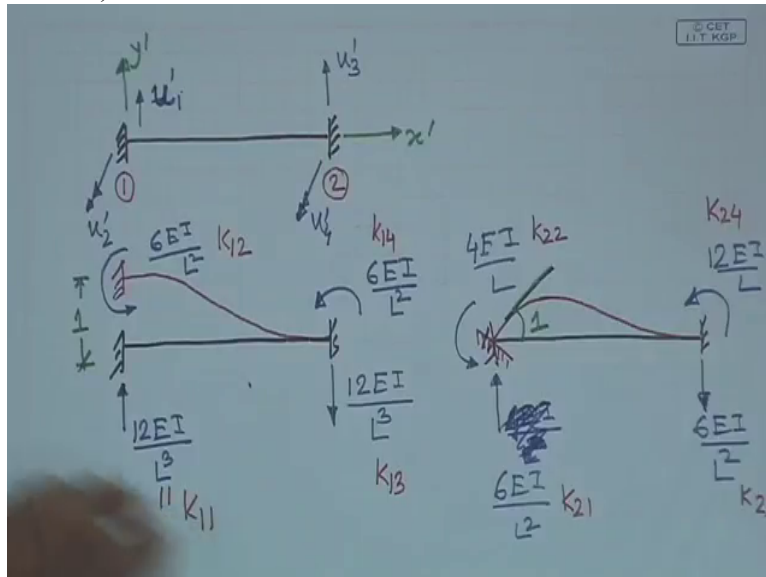 © CET
I.I.T. KGP
y'
u'₁
u'₃
x'
①
②
u'₂
u'₄
6EI/L² K₁₂
K₁₄
6EI/L²
1
12EI/L³
12EI/L³
K₁₃
11 K₁₁
4EI/L K₂₂
K₂₄
12EI/L
1
6EI/L² K₂₁
6EI/L²
K₂